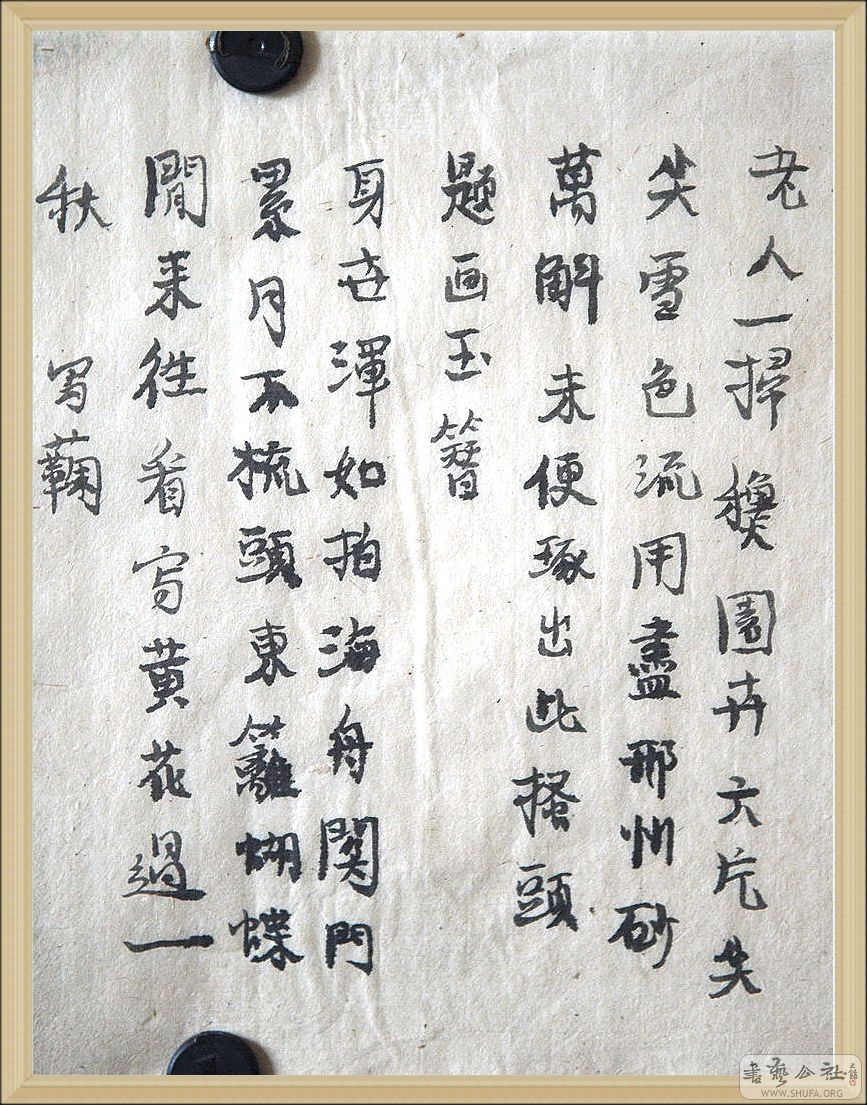 老人一掃園卉六片尖
尖雪色流用盡邢州砂
萬斛未便琢出此搔頭
題画玉簪
身世渾如泊海舟関門
累月不梳頭東籬蝴蝶
閒来往看写黄花過一
秋 写蘜
書藝公社
WWW.SHUFA.ORG